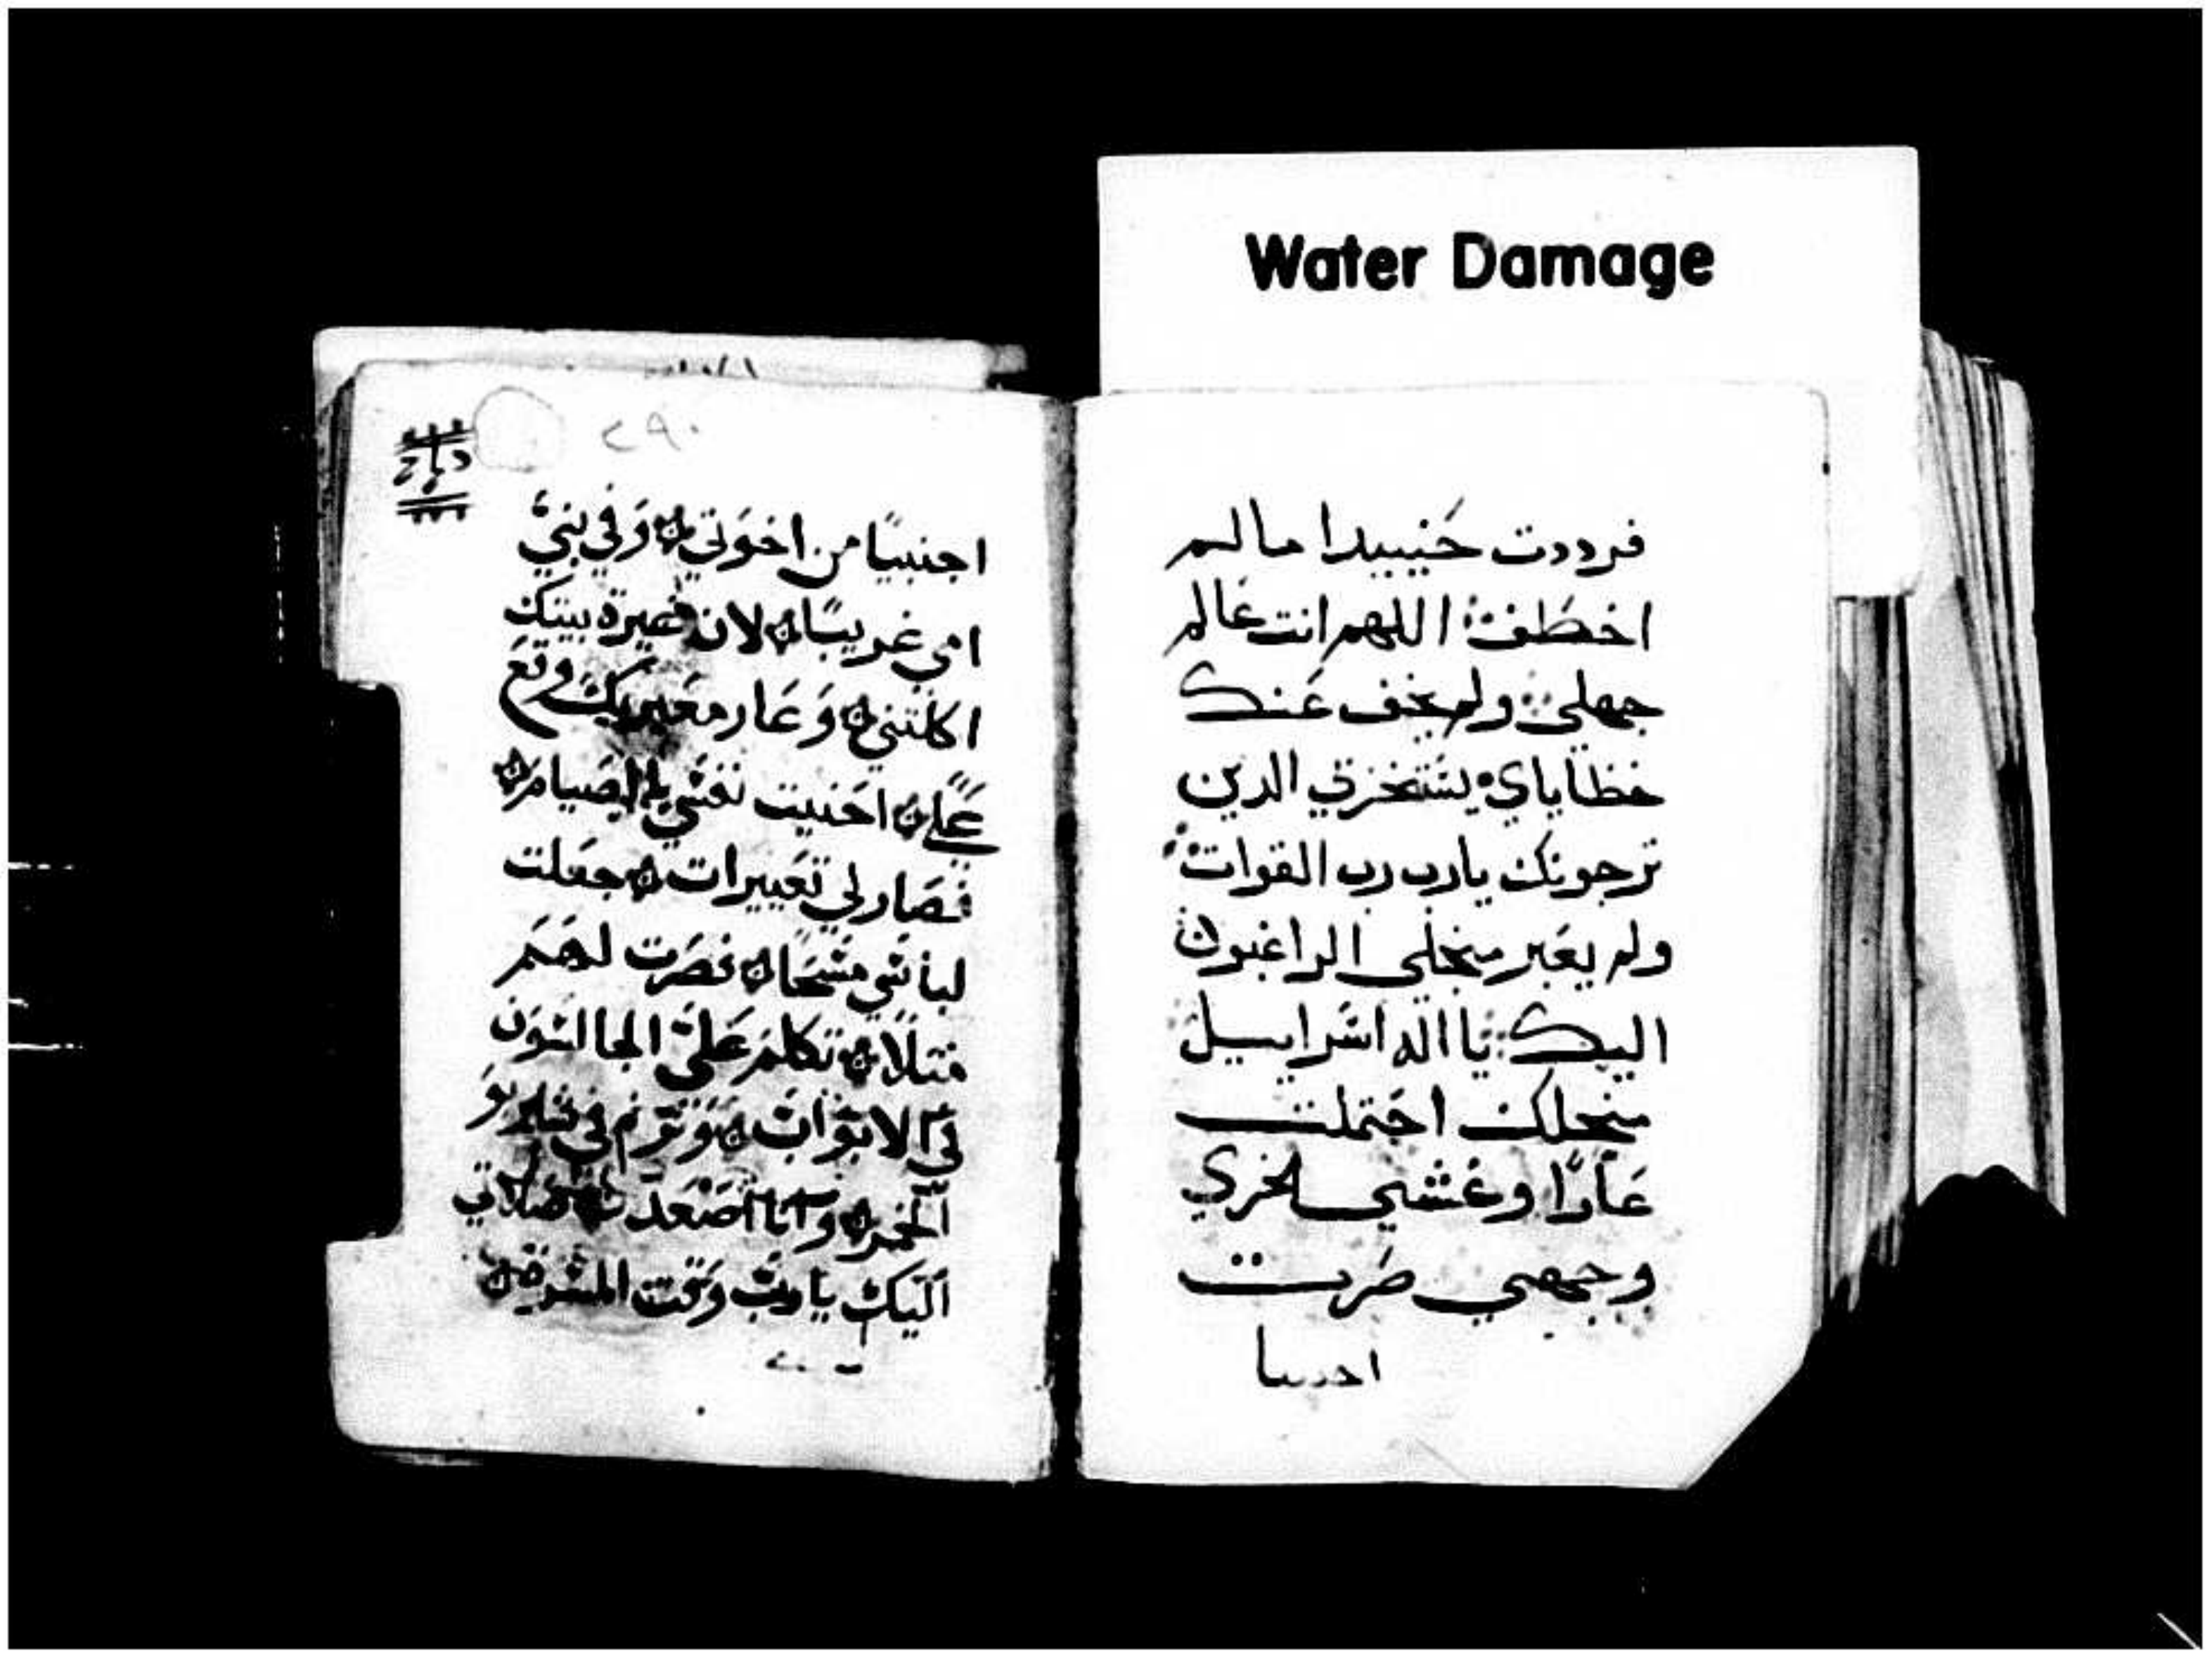 Water Damage
فرددت حنيىيدا ما لم
اخطف اللهم انت عالم
جهلي ولم يخف عنك
خطاياي يستخزي الدين
ترجونك يارب رب القوات
ولم يعبر منجلي الراغبون
اليك يا اله اسرايىل
منجلك احتملت
عارا وغشي لخزي
وجهي صرت
احسا
٢٩٠
اجنبيا من اخوتي وفي بني
امي غريبا لان غيرة بيتك
اكلتني وعار معيريك وقع
علي احنيت نفسي بالصيام
فصار لي تعييرات جعلت
لباسي مسحا فصرت لهم
متلا تكلم علي الجالسون
في الابواب وترنم في شاربو
الخمر وانا اصعد صلاتي
اليك يا رب وقت المسره